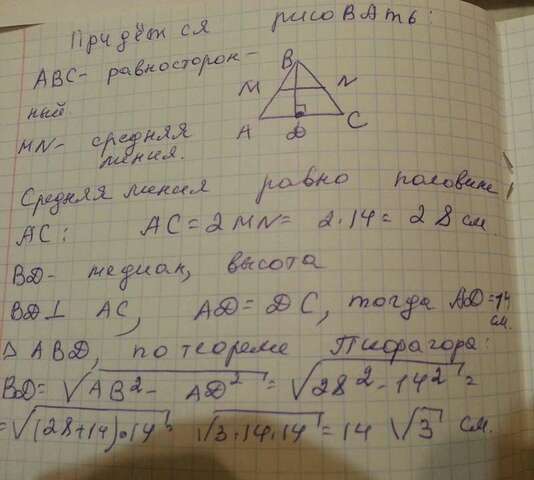 Придётся рисовать:
ABC - равносторон-
ный.
MN - средняя
линия.
B
M N
A D C
Средняя линия равно половине
AC: AC = 2MN = 2·14 = 28 см.
BD - медиан, высота
BD ⊥ AC, AD = DC, тогда AD = 14
см.
△ ABD, по теореме Пифрагора:
BD = √(AB² - AD²) = √(28² - 14²) =
= √((28+14)·14) = √(3·14·14) = 14 √3 см.